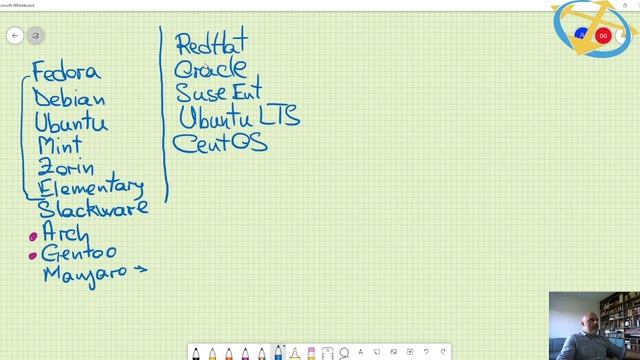 Microsoft Whiteboard
Fedora
Debian
Ubuntu
Mint
Zorin
Elementary
Slackware
Arch
Gentoo
Manjaro →
RedHat
Oracle
Suse Ent
Ubuntu LTS
CentOS
DG
A